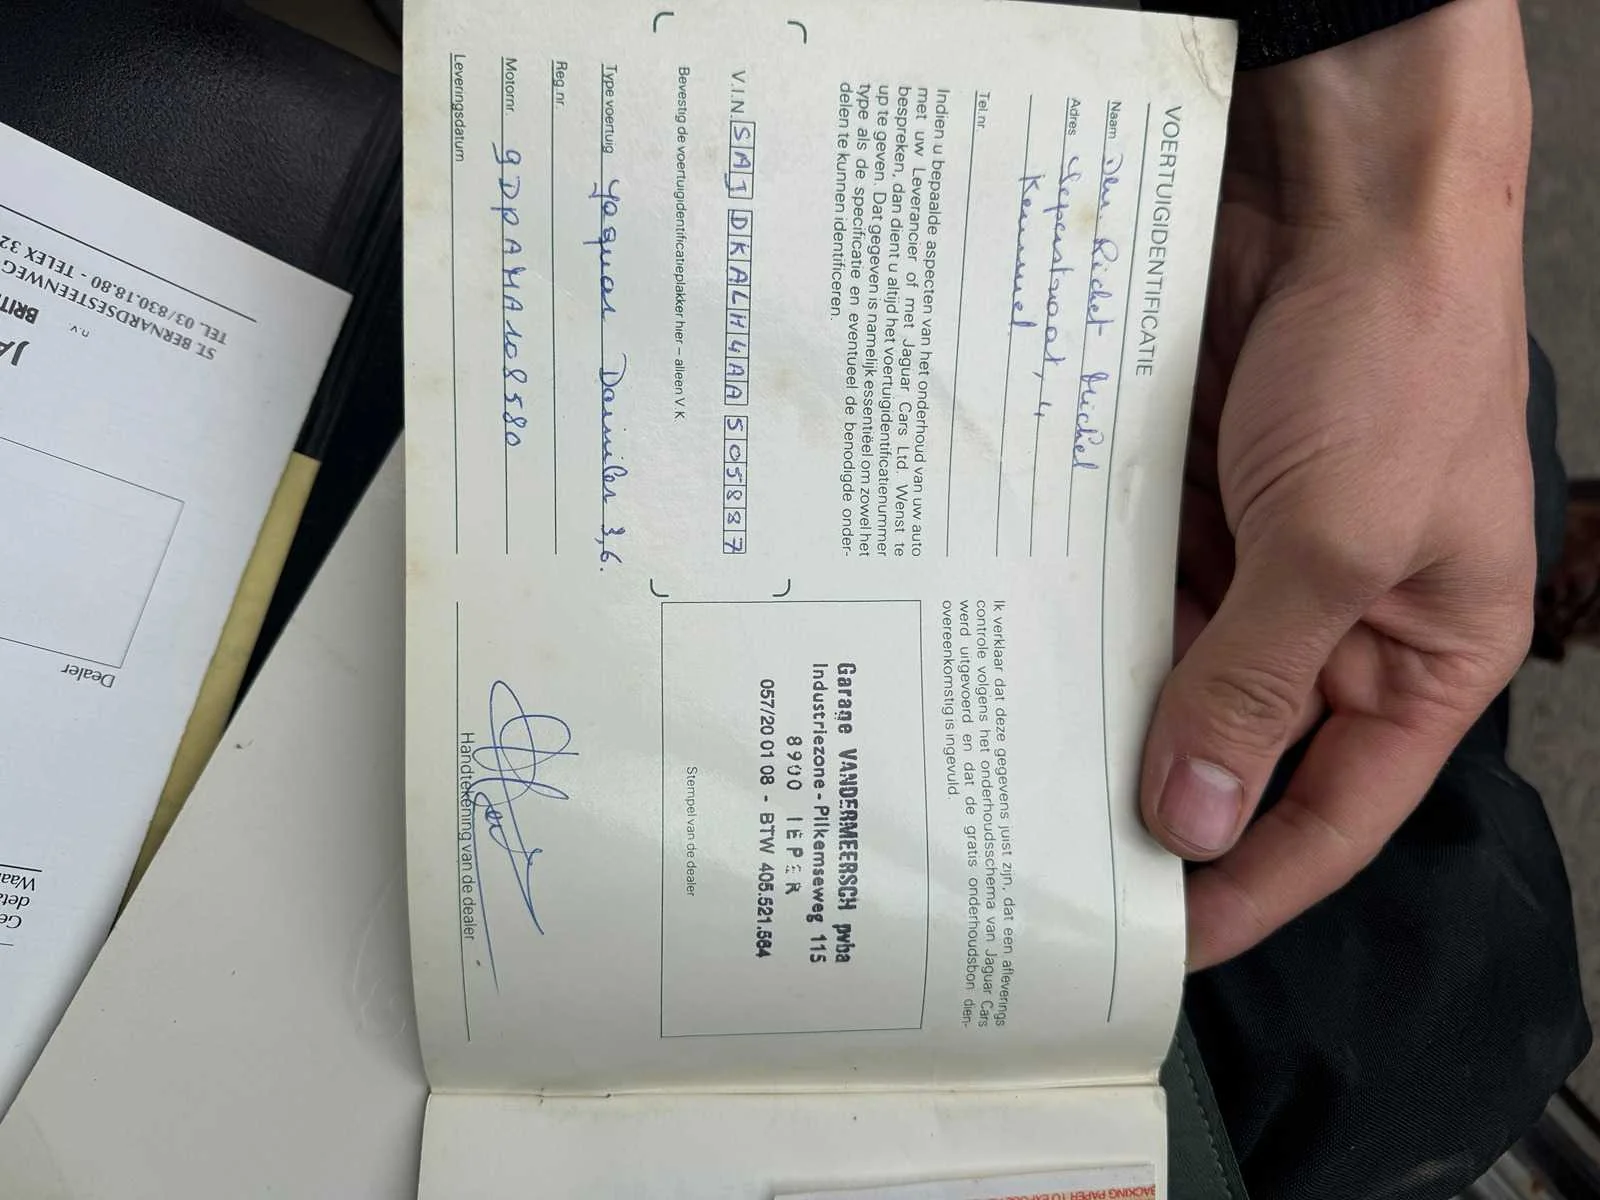 VOERTUIGIDENTIFICATIE
Naam Den. Richet Michel
Adres Diepestraat, 4
Kemmel
Tel.nr.
Indien u bepaalde aspecten van het onderhoud van uw auto
met uw Leverancier of met Jaguar Cars Ltd. Wenst te
bespreken, dan dient u altijd het voertuigidentificatienummer
up te geven. Dat gegeven is namelijk essentiëel om zowel het
type als de specificatie en eventueel de benodigde onder-
delen te kunnen identificeren.
V.I.N. SAJ DKALH4AA 505887
Bevestig de voertuigidentificatieplakker hier – alleen V.K.
Type voertuig Jaguar Daimler 3,6.
Reg.nr.
Motornr. 9DPAMA108580
Leveringsdatum
Ik verklaar dat deze gegevens juist zijn, dat een afleverings
controle volgens het onderhoudsschema van Jaguar Cars
werd uitgevoerd en dat de gratis onderhoudsbon dien-
overeenkomstig is ingevuld.
Garage VANDERMEERSCH pvba
Industriezone - Pilkemseweg 115
8900 IEPER
057/20 01 08 - BTW 405.521.564
Stempel van de dealer
Handtekening van de dealer
BRITI
n.v.
ST. BERNARDSESTEENWEG
TEL. 03/830.18.80 - TELEX 32
Dealer
BACKING PAPER TO EXPO